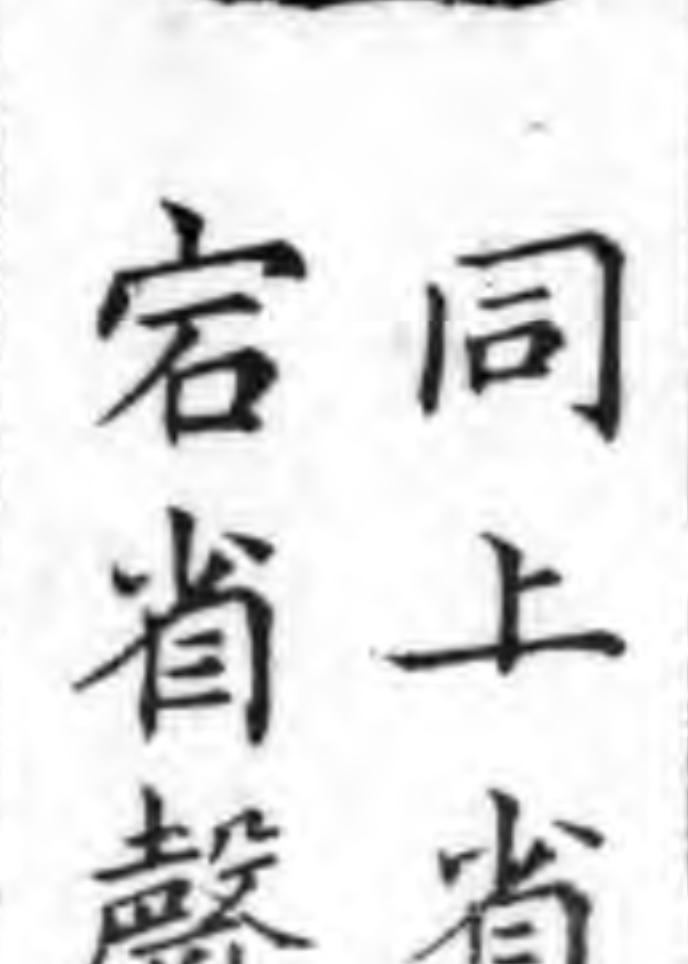 同上省
宕省聲